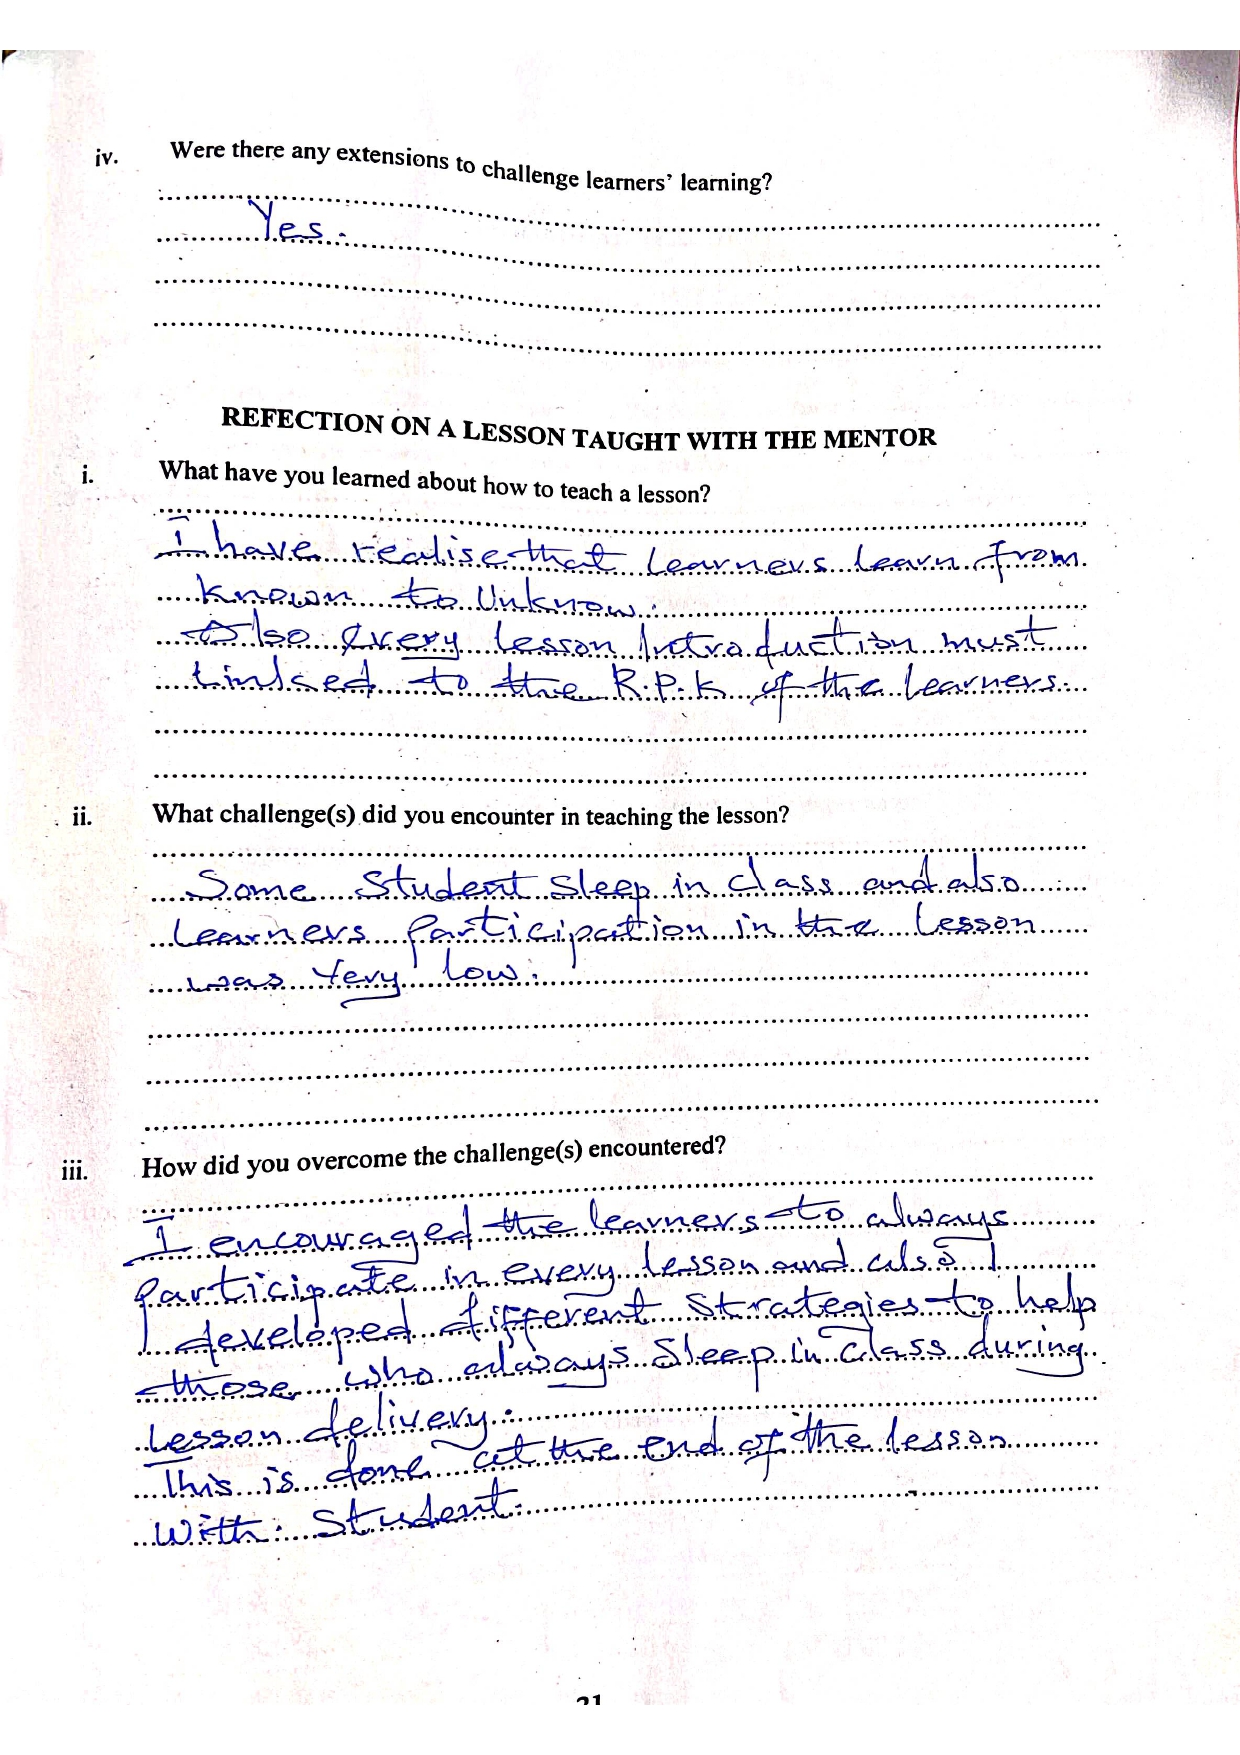 iv. Were there any extensions to challenge learners' learning?
Yes.
REFECTION ON A LESSON TAUGHT WITH THE MENTOR
i. What have you learned about how to teach a lesson?
I have realise that learners learn from
known to Unknow.
Also every lesson Introduction must
linked to the R.P.K of the learners.
ii. What challenge(s) did you encounter in teaching the lesson?
Some Student Sleep in class and also
learners Participation in the lesson
was very low.
iii. How did you overcome the challenge(s) encountered?
I encouraged the learners to always
Participate in every lesson and also I
developed different Strategies to help
those who always Sleep in class during
Lesson delivery.
This is done at the end of the lesson
With Student.
21